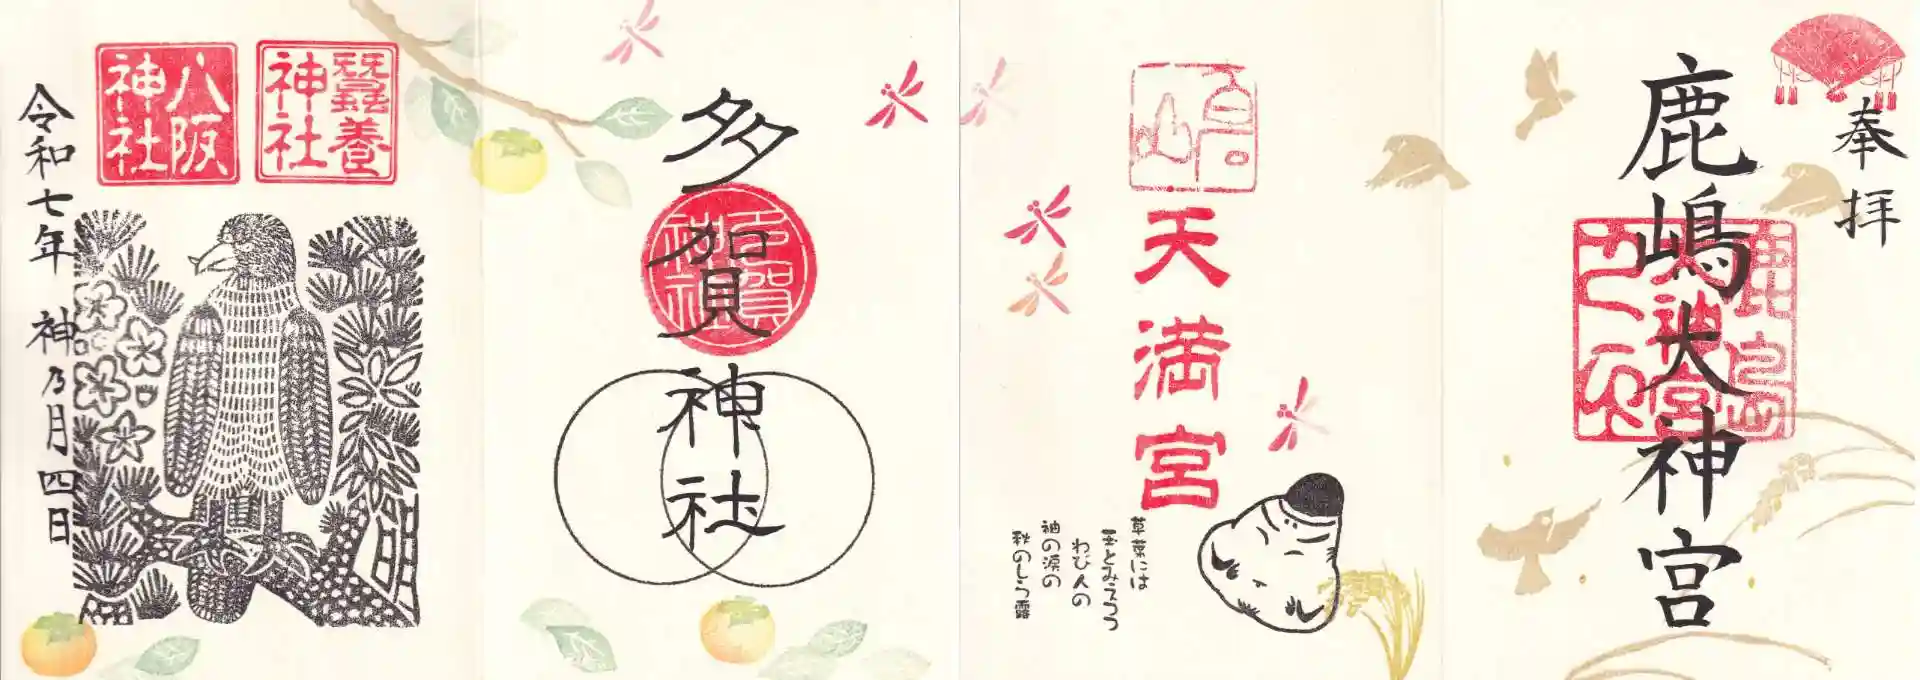 奉拝
鹿嶋大神宮
天満宮
草葉には
玉とみえつつ
わび人の
袖の涙の
秋のしら露
多賀神社
多賀
神社
蠶養
神社
八阪
神社
令和七年 神乃月四日